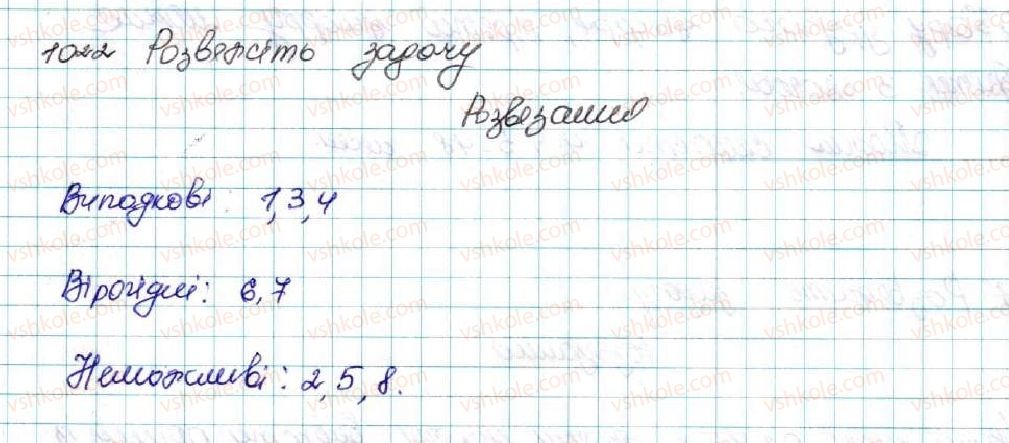 1022 Розвяжіть задачу
Розвязання
Випадкові: 1,3,4
Вірогідні: 6,7
Неможливі: 2,5,8.